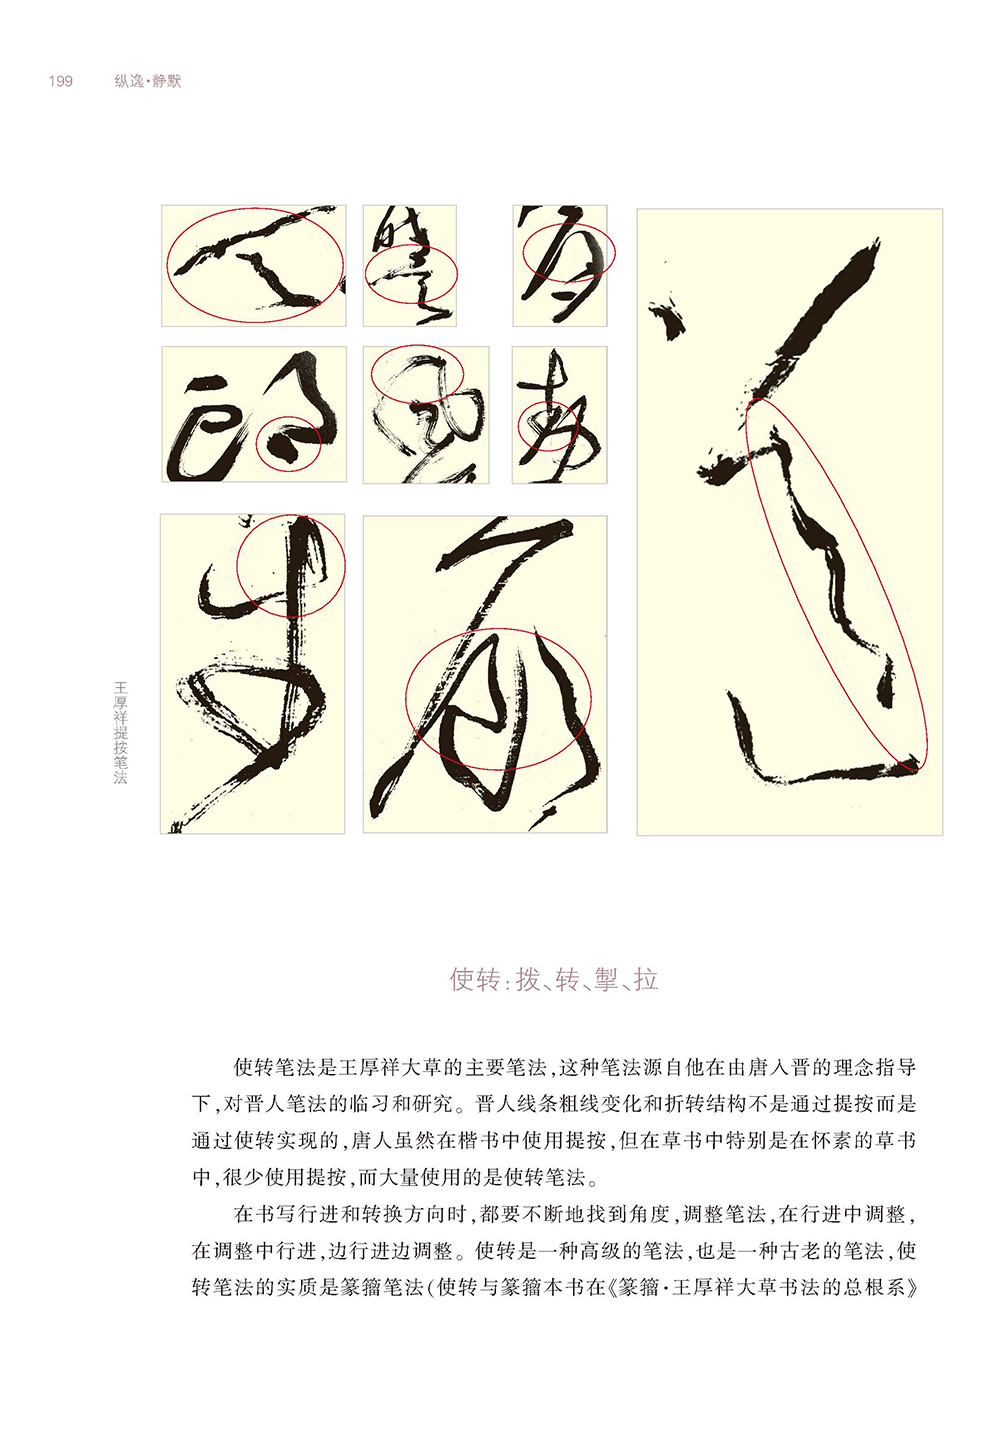 199 纵逸·静默
王厚祥提按笔法
使转:拨、转、掣、拉
使转笔法是王厚祥大草的主要笔法,这种笔法源自他在由唐入晋的理念指导
下,对晋人笔法的临习和研究。晋人线条粗线变化和折转结构不是通过提按而是
通过使转实现的,唐人虽然在楷书中使用提按,但在草书中特别是在怀素的草书
中,很少使用提按,而大量使用的是使转笔法。
在书写行进和转换方向时,都要不断地找到角度,调整笔法,在行进中调整,
在调整中行进,边行进边调整。使转是一种高级的笔法,也是一种古老的笔法,使
转笔法的实质是篆籀笔法(使转与篆籀本书在《篆籀·王厚祥大草书法的总根系》